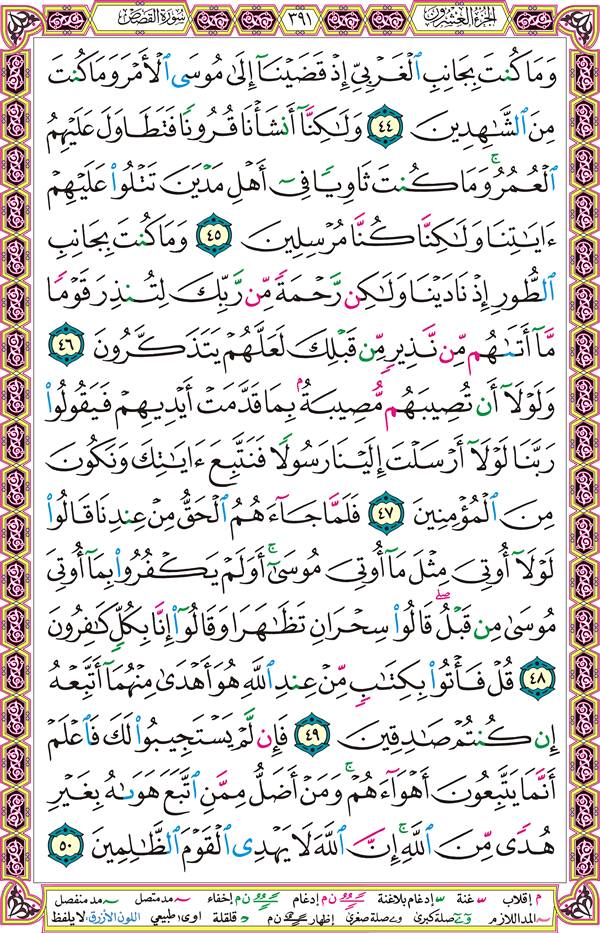 الجزء العشرون
٣٩١
سورة القصص
وَمَا كُنتَ بِجَانِبِ ٱلْغَرْبِيِّ إِذْ قَضَيْنَآ إِلَىٰ مُوسَى ٱلْأَمْرَ وَمَا كُنتَ
مِنَ ٱلشَّٰهِدِينَ ٤٤ وَلَٰكِنَّآ أَنشَأْنَا قُرُونًا فَتَطَاوَلَ عَلَيْهِمُ
ٱلْعُمُرُ ۚ وَمَا كُنتَ ثَاوِيًا فِىٓ أَهْلِ مَدْيَنَ تَتْلُوا۟ عَلَيْهِمْ
ءَايَٰتِنَا وَلَٰكِنَّا كُنَّا مُرْسِلِينَ ٤٥ وَمَا كُنتَ بِجَانِبِ
ٱلطُّورِ إِذْ نَادَيْنَا وَلَٰكِن رَّحْمَةً مِّن رَّبِّكَ لِتُنذِرَ قَوْمًا
مَّآ أَتَىٰهُم مِّن نَّذِيرٍ مِّن قَبْلِكَ لَعَلَّهُمْ يَتَذَكَّرُونَ ٤٦
وَلَوْلَآ أَن تُصِيبَهُم مُّصِيبَةٌۢ بِمَا قَدَّمَتْ أَيْدِيهِمْ فَيَقُولُوا۟
رَبَّنَا لَوْلَآ أَرْسَلْتَ إِلَيْنَا رَسُولًا فَنَتَّبِعَ ءَايَٰتِكَ وَنَكُونَ
مِنَ ٱلْمُؤْمِنِينَ ٤٧ فَلَمَّا جَآءَهُمُ ٱلْحَقُّ مِنْ عِندِنَا قَالُوا۟
لَوْلَآ أُوتِىَ مِثْلَ مَآ أُوتِىَ مُوسَىٰٓ ۚ أَوَلَمْ يَكْفُرُوا۟ بِمَآ أُوتِىَ
مُوسَىٰ مِن قَبْلُ ۖ قَالُوا۟ سِحْرَانِ تَظَٰهَرَا وَقَالُوٓا۟ إِنَّا بِكُلٍّ كَٰفِرُونَ
٤٨ قُلْ فَأْتُوا۟ بِكِتَٰبٍ مِّنْ عِندِ ٱللَّهِ هُوَ أَهْدَىٰ مِنْهُمَآ أَتَّبِعْهُ
إِن كُنتُمْ صَٰدِقِينَ ٤٩ فَإِن لَّمْ يَسْتَجِيبُوا۟ لَكَ فَٱعْلَمْ
أَنَّمَا يَتَّبِعُونَ أَهْوَآءَهُمْ ۚ وَمَنْ أَضَلُّ مِمَّنِ ٱتَّبَعَ هَوَىٰهُ بِغَيْرِ
هُدًى مِّنَ ٱللَّهِ ۚ إِنَّ ٱللَّهَ لَا يَهْدِى ٱلْقَوْمَ ٱلظَّٰلِمِينَ ٥٠
م إقلاب غنة إدغام بلاغنة ن م إدغام ن م إخفاء مد متصل مد منفصل
المد اللازم صلة كبرى صلة صغرى إظهار ن م قلقلة اوى طبيعي اللون الأزرق: لا يلفظ